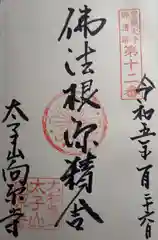 聖徳太子
御遺跡
第十二番
令和五年一月二十六日
佛法根源精舎
太子山向原寺
太子山